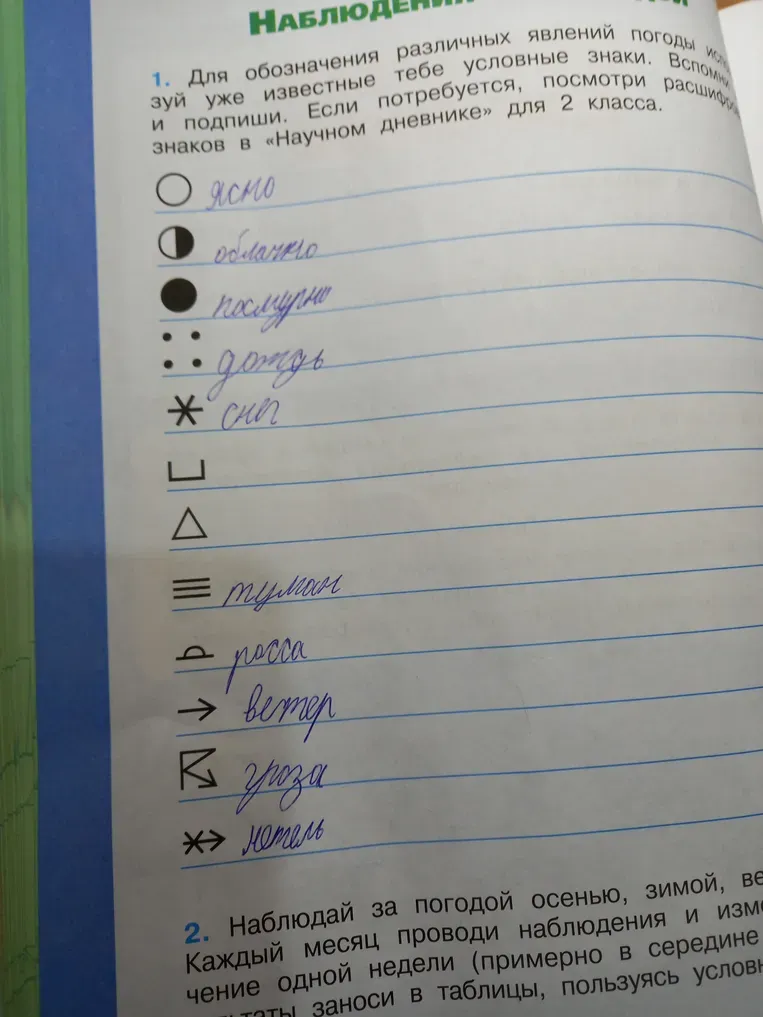 НАБЛЮДЕНИЯ
1. Для обозначения различных явлений погоды испо
зуй уже известные тебе условные знаки. Вспомни
и подпиши. Если потребуется, посмотри расшифро
знаков в «Научном дневнике» для 2 класса.
ясно
облачно
посмурно
дождь
снег
туман
росса
ветер
гроза
метель
2. Наблюдай за погодой осенью, зимой, ве
Каждый месяц проводи наблюдения и изме
чение одной недели (примерно в середине
льтаты заноси в таблицы, пользуясь условн